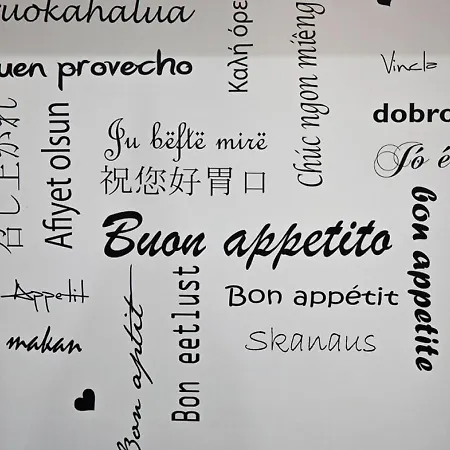 ruokahalua
uen provecho
Καλή όρε
Chúc ngon miệng
Vincla
dobro
召し上がれ
Afiyet olsun
Ju bëftë mirë
祝您好胃口
Jó é
Buon appetito
bon appetite
Appetit
Bon eetlust
Bon appétit
makan
Bon aptit
Skanaus